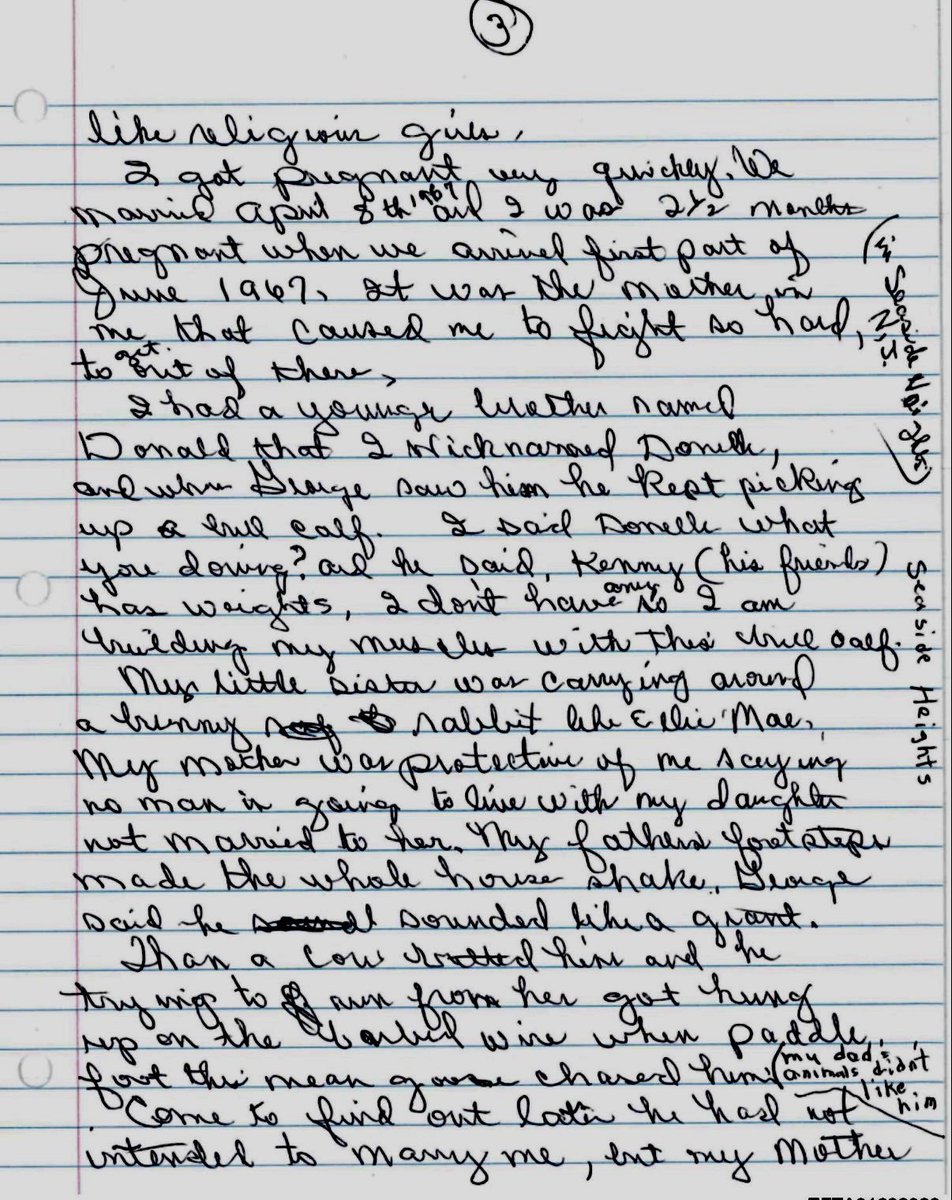 3
like religion gives.
I got pregnant very quickly. We
married April 8th 1967 and I was 2 1/2 months
pregnant when we arrived first part of
June 1967. It was the mother in
me that caused me to fight so hard,
to get out of there,
(in Seaside Heights N.J.)
I had a younger brother named
Donald that I nicknamed Donelle,
and when George saw him he kept picking
up a bull calf. I said Donelle what
you doing? and he said, Kenny (his friends)
has weights, I don't have any so I am
building my muscles with this bull calf.
Seaside Heights
My little sister was carrying around
a bunny rabbit like Ellie Mae.
My mother was protective of me saying
no man is going to live with my daughter
not married to her. My fathers footsteps
made the whole house shake. George
said he sounded like a giant.
Than a cow butted him and he
trying to run from her got hung
up on the barbed wire when paddle
foot this mean goose chased him (my dad's
animals didn't
like
him
Come to find out later he had not
intended to marry me, but my Mother